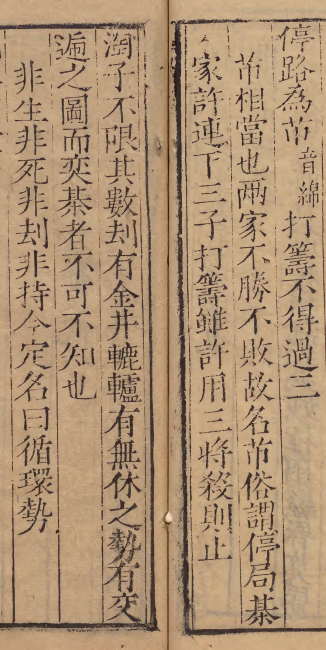 停路為芇音綿打籌不得過三
芇相當也兩家不勝不敗故名芇俗謂停局棊
家許連下三子打籌雖許用三將殺則止
淘子不限其數刦有金井轆轤有無休之勢有交
遞之圖而奕棊者不可不知也
非生非死非刦非持今定名曰循環勢